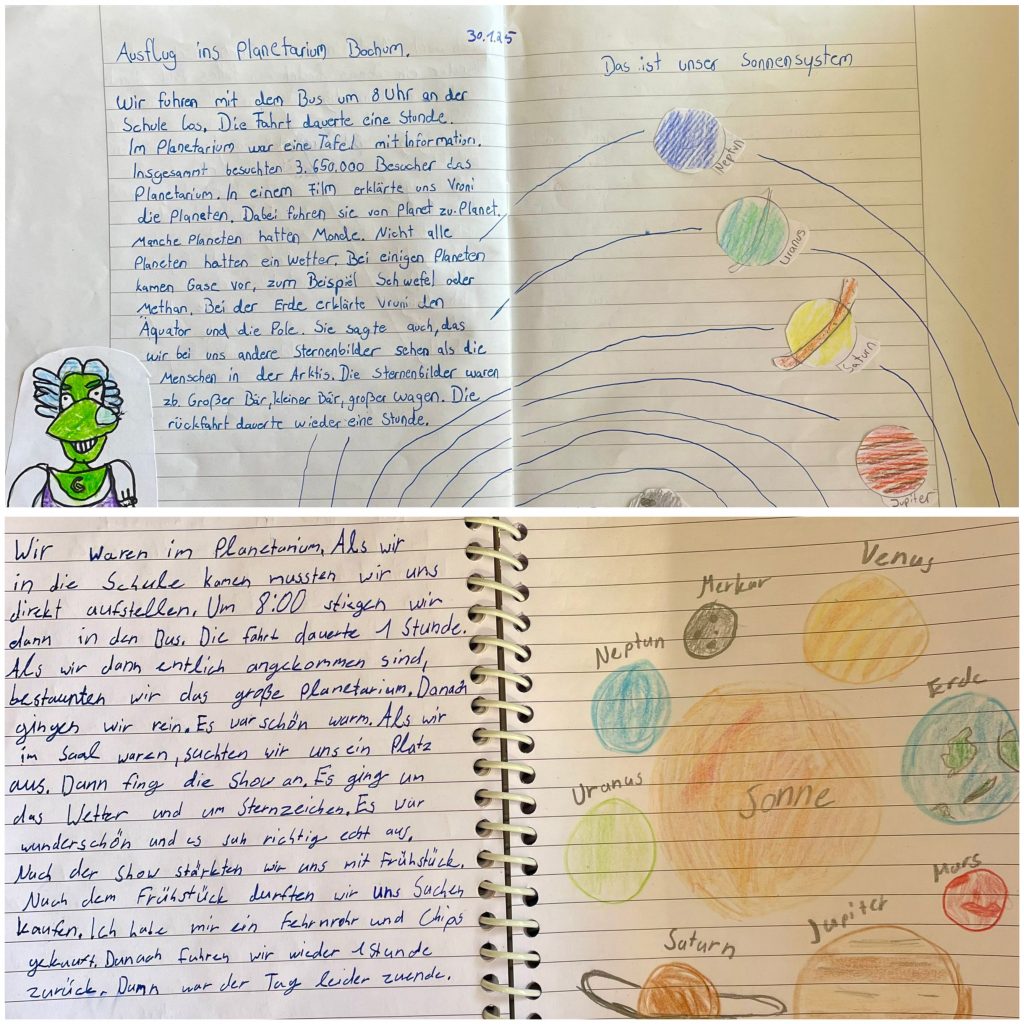 30.1.25
Ausflug ins Planetarium Bochum.
Wir fuhren mit dem Bus um 8 Uhr an der
Schule los. Die Fahrt dauerte eine Stunde.
Im Planetarium war eine Tafel mit Information.
Insgesammt besuchten 3.650.000 Besucher das
Planetarium. In einem Film erklärte uns Vroni
die Planeten. Dabei fuhren sie von Planet zu Planet.
Manche Planeten hatten Monde. Nicht alle
Planeten hatten ein Wetter. Bei einigen Planeten
kamen Gase vor, zum Beispiel Schwefel oder
Methan. Bei der Erde erklärte Vroni den
Äquator und die Pole. Sie sagte auch, das
wir bei uns andere Sternenbilder sehen als die
Menschen in der Arktis. Die Sternenbilder waren
zb. Großer Bär, kleiner Bär, großer Wagen. Die
rückfahrt dauerte wieder eine Stunde.
G
Das ist unser Sonnensystem
Neptun
Uranus
Saturn
Jupiter
Wir waren im Planetarium. Als wir
in die Schule kamen mussten wir uns
direkt aufstellen. Um 8:00 stiegen wir
dann in den Bus. Die fahrt dauerte 1 Stunde.
Als wir dann entlich angekommen sind,
bestaunten wir das große Planetarium. Danach
gingen wir rein. Es war schön warm. Als wir
im Saal waren, suchten wir uns ein Platz
aus. Dann fing die Show an. Es ging um
das Wetter und um Sternzeichen. Es war
wunderschön und es sah richtig echt aus.
Nach der Show stärkten wir uns mit Frühstück.
Nach dem Frühstück durften wir uns Sachen
kaufen. Ich habe mir ein Fehrnrohr und Chips
gekauft. Danach fuhren wir wieder 1 Stunde
zurück. Dann war der Tag leider zuende.
Merkur
Venus
Neptun
Erde
Uranus
Sonne
Mars
Jupiter
Saturn